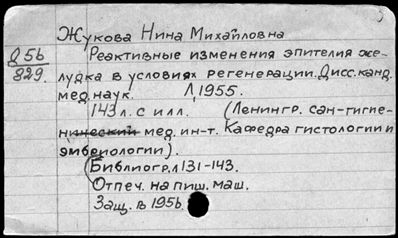 Жукова Нина Михайловна
Д 56
829.
Реактивные изменения эпителия же-
лудка в условиях регенерации. Дисс. канд.
мед. наук. Л, 1955.
143 л. с илл. (Ленингр. сан-гигие-
нический мед. ин-т. Кафедра гистологии и
эмбриологии).
(Библиогр. л 131-143.
Отпеч. на пиш. маш.
Защ. в 1956.